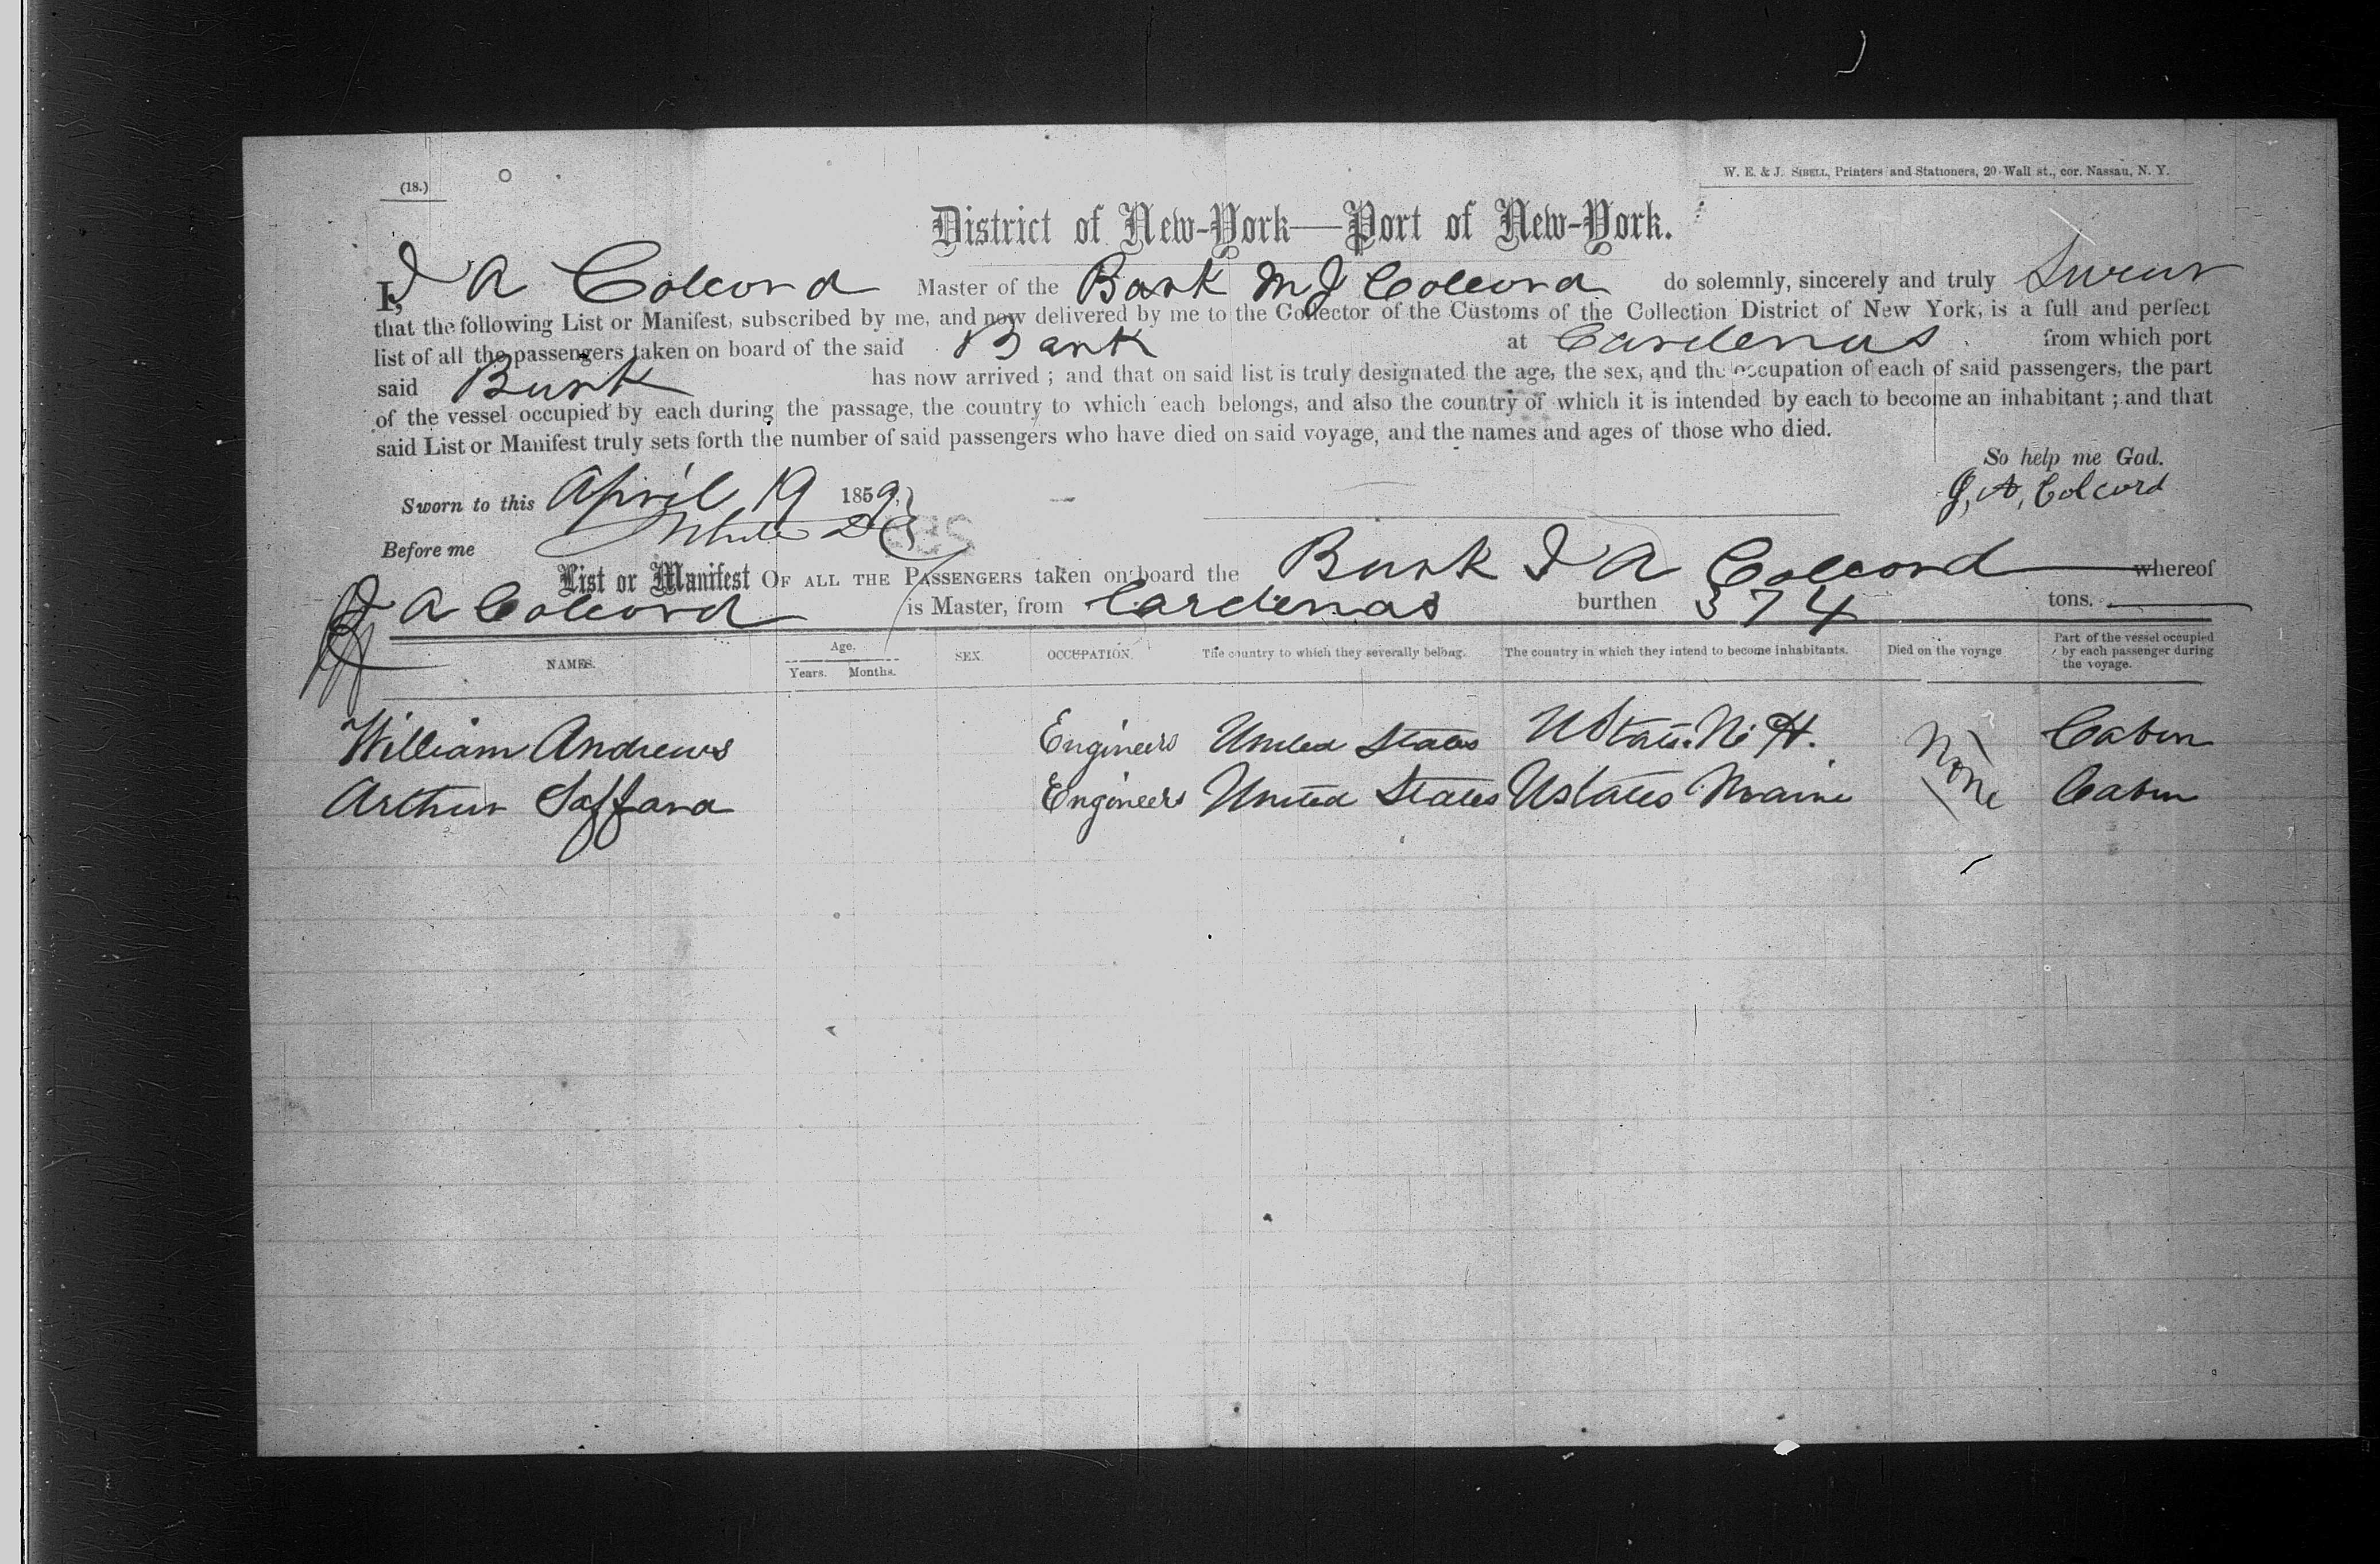 (18.)
W. E. & J. SIBELL, Printers and Stationers, 20 Wall st., cor. Nassau, N. Y.
District of New-York—Port of New-York.
I, J A Colcord Master of the Bark M J Colcord do solemnly, sincerely and truly Swear
that the following List or Manifest, subscribed by me, and now delivered by me to the Collector of the Customs of the Collection District of New York, is a full and perfect
list of all the passengers taken on board of the said Bark at Cardenas from which port
said Bark has now arrived ; and that on said list is truly designated the age, the sex, and the occupation of each of said passengers, the part
of the vessel occupied by each during the passage, the country to which each belongs, and also the country of which it is intended by each to become an inhabitant ; and that
said List or Manifest truly sets forth the number of said passengers who have died on said voyage, and the names and ages of those who died.
So help me God.
Sworn to this April 19 1859,
J, A, Colcord
Before me White
List or Manifest OF ALL THE PASSENGERS taken on board the Bark J A Colcord whereof
J A Colcord is Master, from Cardenas burthen 374 tons.
NAMES. Age. Years. Months. SEX. OCCUPATION. The country to which they severally belong. The country in which they intend to become inhabitants. Died on the voyage Part of the vessel occupied by each passenger during the voyage.
William Andrews Engineers United States UStates N H. None Cabin
Arthur Saffara Engineers United States UStates Maine Cabin